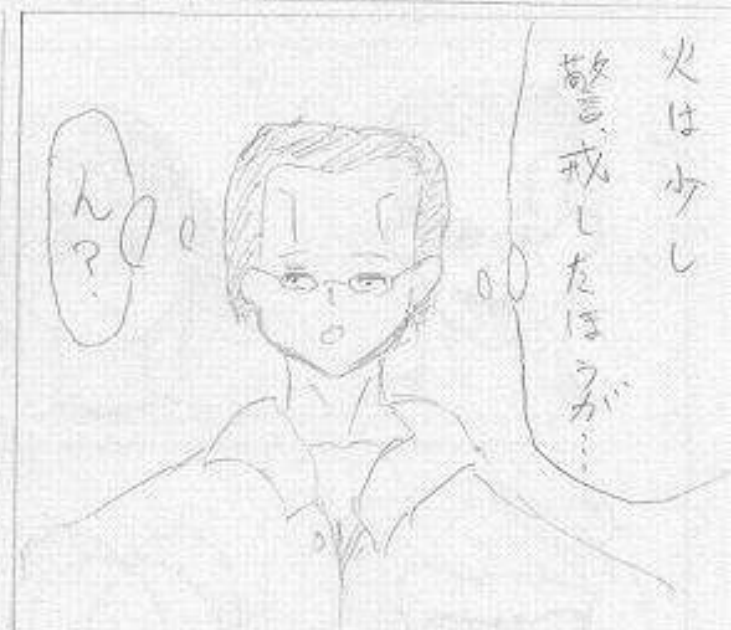 火は少し
警戒したほうが…
ん?